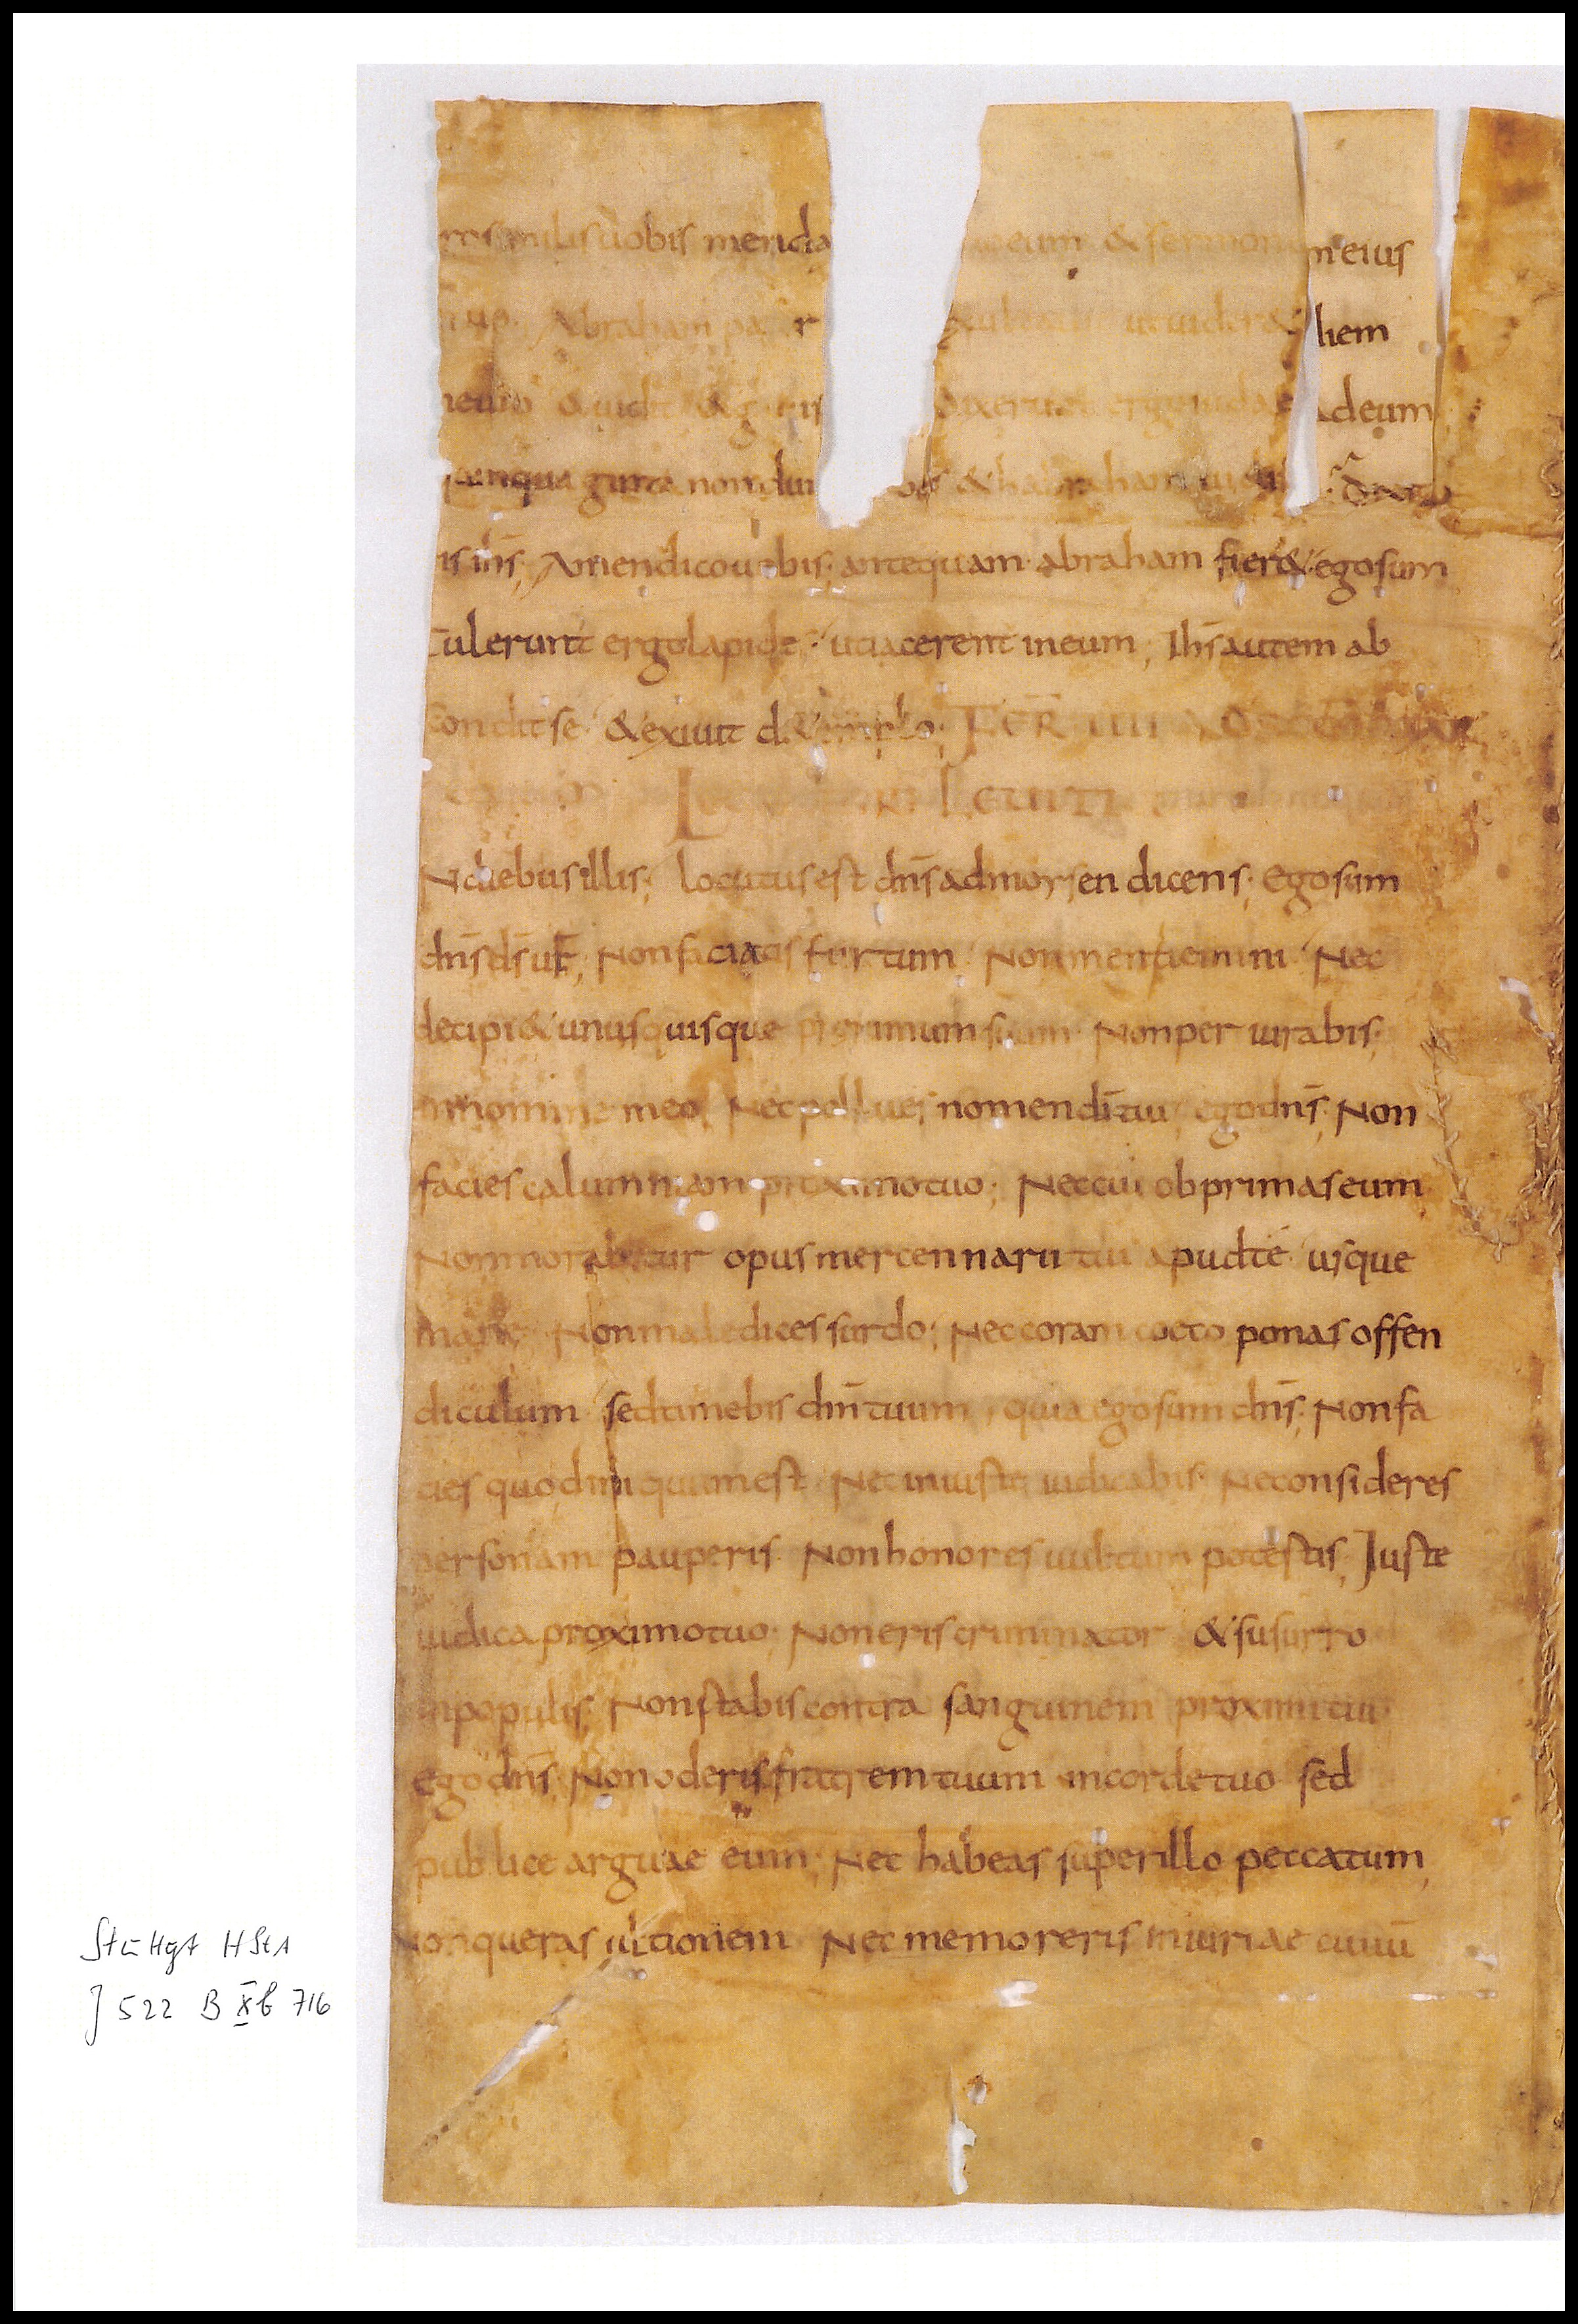 similis uobis menda eum & sermon m eius
Abraham pater ut uider& diem
meum & uidit & g uis dixerunt ergo iudaei ad eum
quinquaginta non dum & habraham uidis
is ihs; Amen dico uobis; antequam abraham fier& egosum
Tulerunt ergo lapides ut iacerent ineum; Ihs autem ab
condit se & exiuit d& emplo; FER IIII
LEUITI
N diebus illis; Locutus est dns ad moysen dicens; Egosum
dns ds ur; Non faciatis furtum Non mentiemini Nec
decipi& unusquisque proximum suum Non per iurabis;
in nomine meo; Nec pollues nomen di tui; ego dns; Non
facies calumniam proximo tuo; Nec cui obprimas eum
Non morabitur opus mercennarii tui apud te usque
mane Non maledices surdo; Nec coram ceco ponas offen
diculum sed timebis dnm tuum; quia egosum dns; Non fa
cies quod iniquum est Nec iniuste iudicabis; Neconsideres
personam pauperis Non honores uultum potestis; Iuste
iudica proximo tuo; Non eris criminator & susurro
in populis; Non stabis contra sanguinem proximi tui
ego dns Non oderis fratrem tuum incorde tuo sed
publice arguae eum; Nec habeas super illo peccatum
Non queras ultionem Nec memoreris iniuriae ciuiu
Stuttgt HStA
J 522 B Xb 716